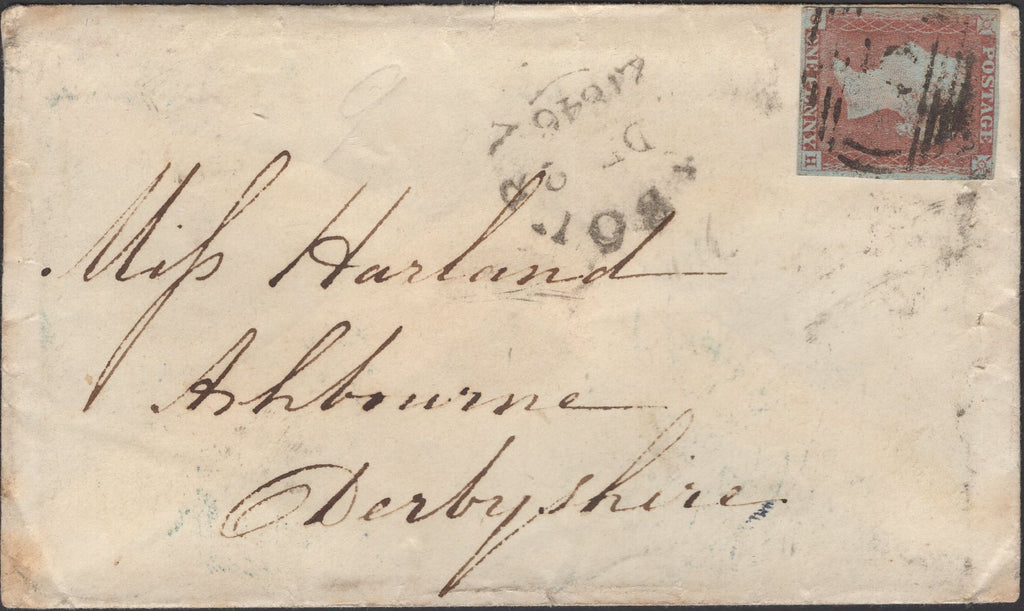 POSTAGE
ONE PENNY
H
1846
DE
Miss Harland
Ashbourne
Derbyshire